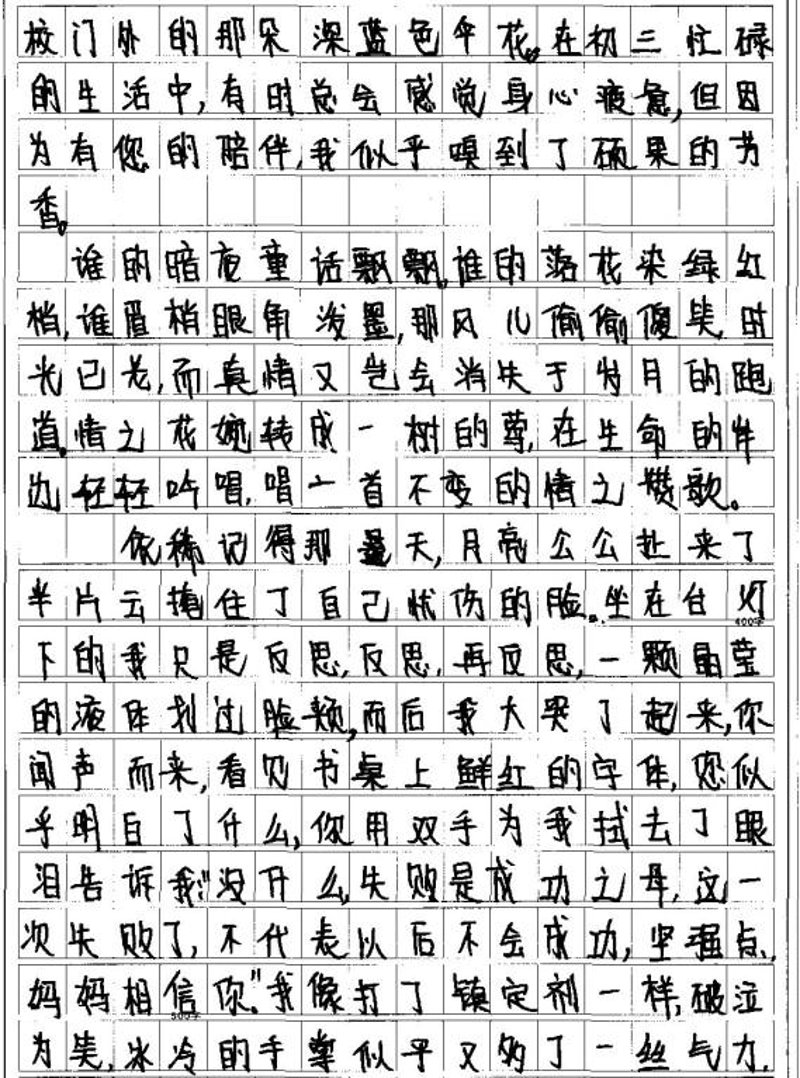 校门外的那朵深蓝色伞花。在初三忙碌
的生活中,有时总会感觉身心疲惫,但因
为有您的陪伴,我似乎嗅到了硕果的芳
香。
谁的暗夜童话飘飘。谁的落花染绿红
梢,谁眉梢眼角泼墨,那风儿偷偷傻笑,时
光已老,而真情又岂会消失于岁月的跑
道。情之花婉转成一树的萼,在生命的伴
边轻轻吟唱,唱一首不变的情之赞歌。
依稀记得那晨天,月亮么么扯来了
半片云掩住了自己忧伤的脸。坐在台灯
400字
下的我只是反思,反思,再反思,一颗晶莹
的液体划过脸颊,而后我大哭了起来,你
闻声而来,看见书桌上鲜红的字体,您似
乎明白了什么,你用双手为我拭去了眼
泪告诉我:"没什么,失败是成功之母,这一
次失败了,不代表以后不会成功,坚强点,
妈妈相信你。"我像打了镇定剂一样,破泣
500字
为笑,冰冷的手掌似乎又多了一丝气力,